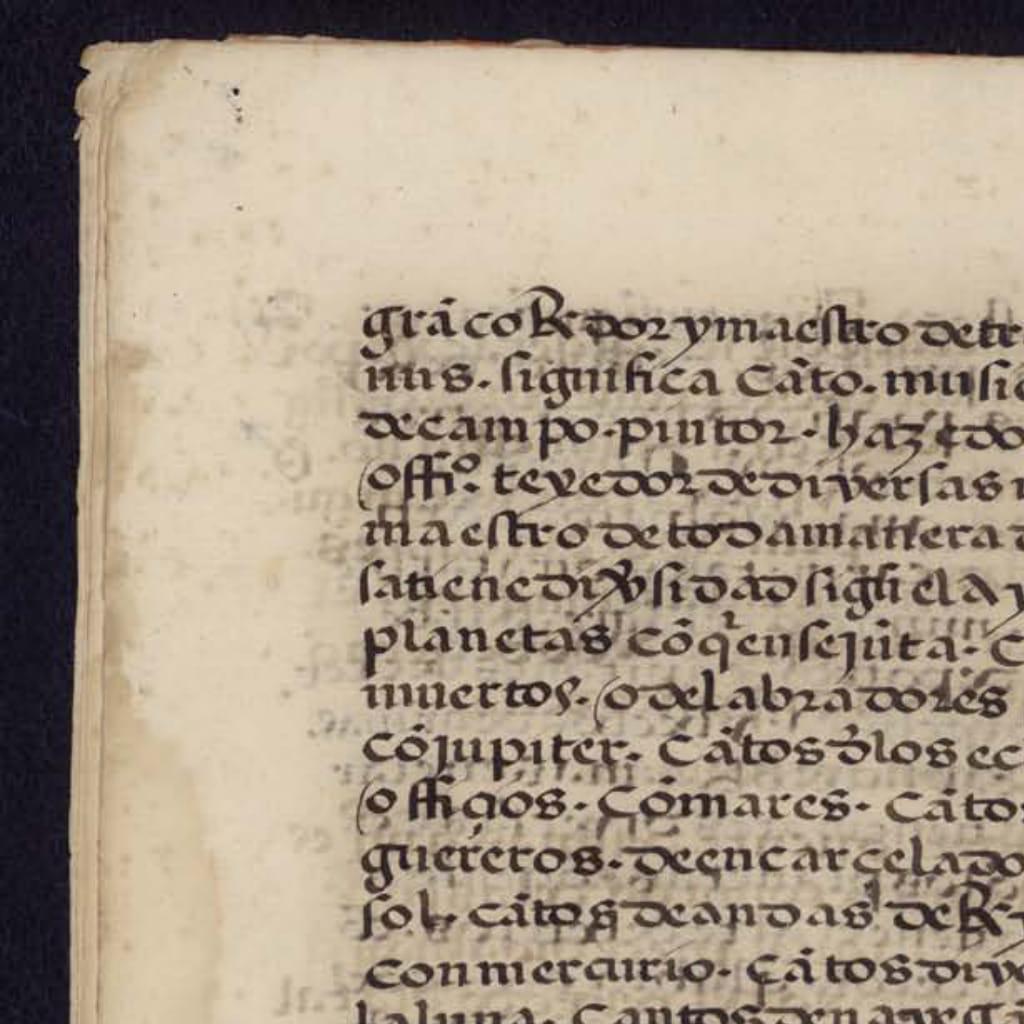 grã coRedor y maestro de tr
nus. significa Cãto. musi
de campo. pintor. haz e do
offiº. texedor de diversas
maestro de toda manera
sa tiene diṽsidad sigfi el A y
planetas cõ q̃ ense jũta. C
muertos. o de labradores
cõ jupiter. Cãtos đlos ec
offiçios. Cõ mares. Cãto
guereros. de encarçelado
sol. cãtos de andas de R
Con mercurio. Cãtos dive
la luna. Cantos de